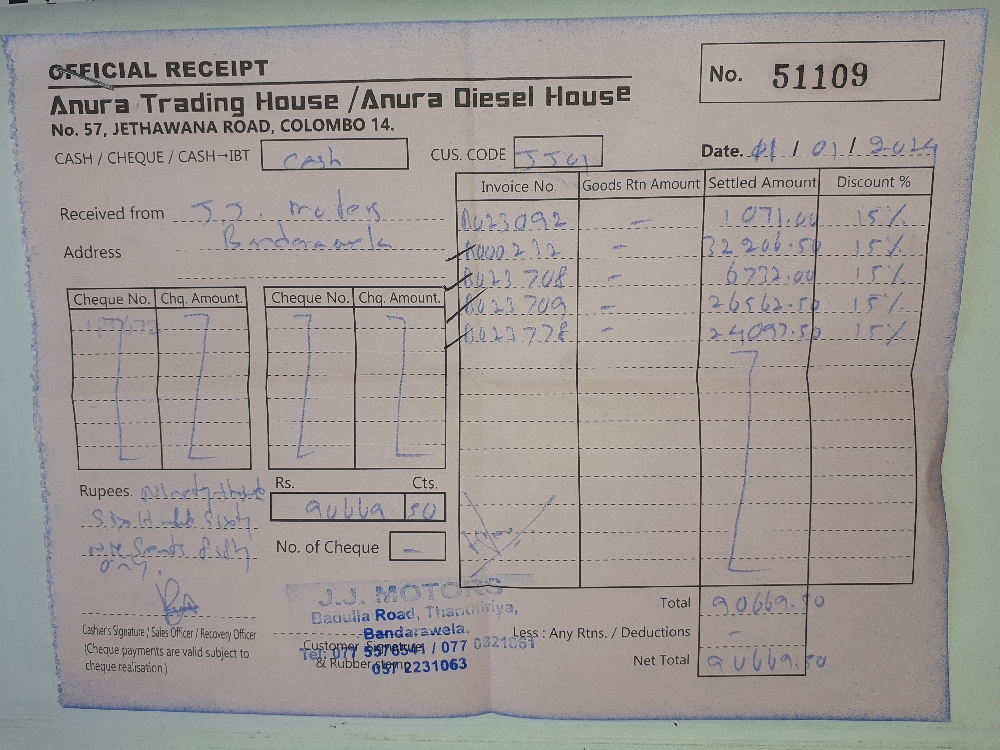 OFFICIAL RECEIPT
No. 51109
Anura Trading House /Anura Diesel House
No. 57, JETHAWANA ROAD, COLOMBO 14.
CASH / CHEQUE / CASH→IBT Cash
CUS. CODE JJ01
Date. 01 / 01 / 2024
Received from J.J. motors
Address Bandarawela
Invoice No. Goods Rtn Amount Settled Amount Discount %
0023092 – 1071.00 15%
0000232 – 32206.50 15%
0023708 – 6732.00 15%
0023709 – 26562.50 15%
0023778 – 24097.50 15%
Cheque No. Chq. Amount. Cheque No. Chq. Amount.
Rupees. Ninety
Sixty
nine Fifty
only.
Rs. Cts.
90669 50
No. of Cheque –
Total 90669.50
Less : Any Rtns. / Deductions –
Net Total 90669.50
Cashier's Signature / Sales Officer / Recovery Officer
(Cheque payments are valid subject to
cheque realisation.)
Customer Signature
& Rubber stamp
J.J. MOTORS
Badulla Road, Thanthiriya,
Bandarawela.
Tel: 077 5576541 / 077 0821861
057 2231063